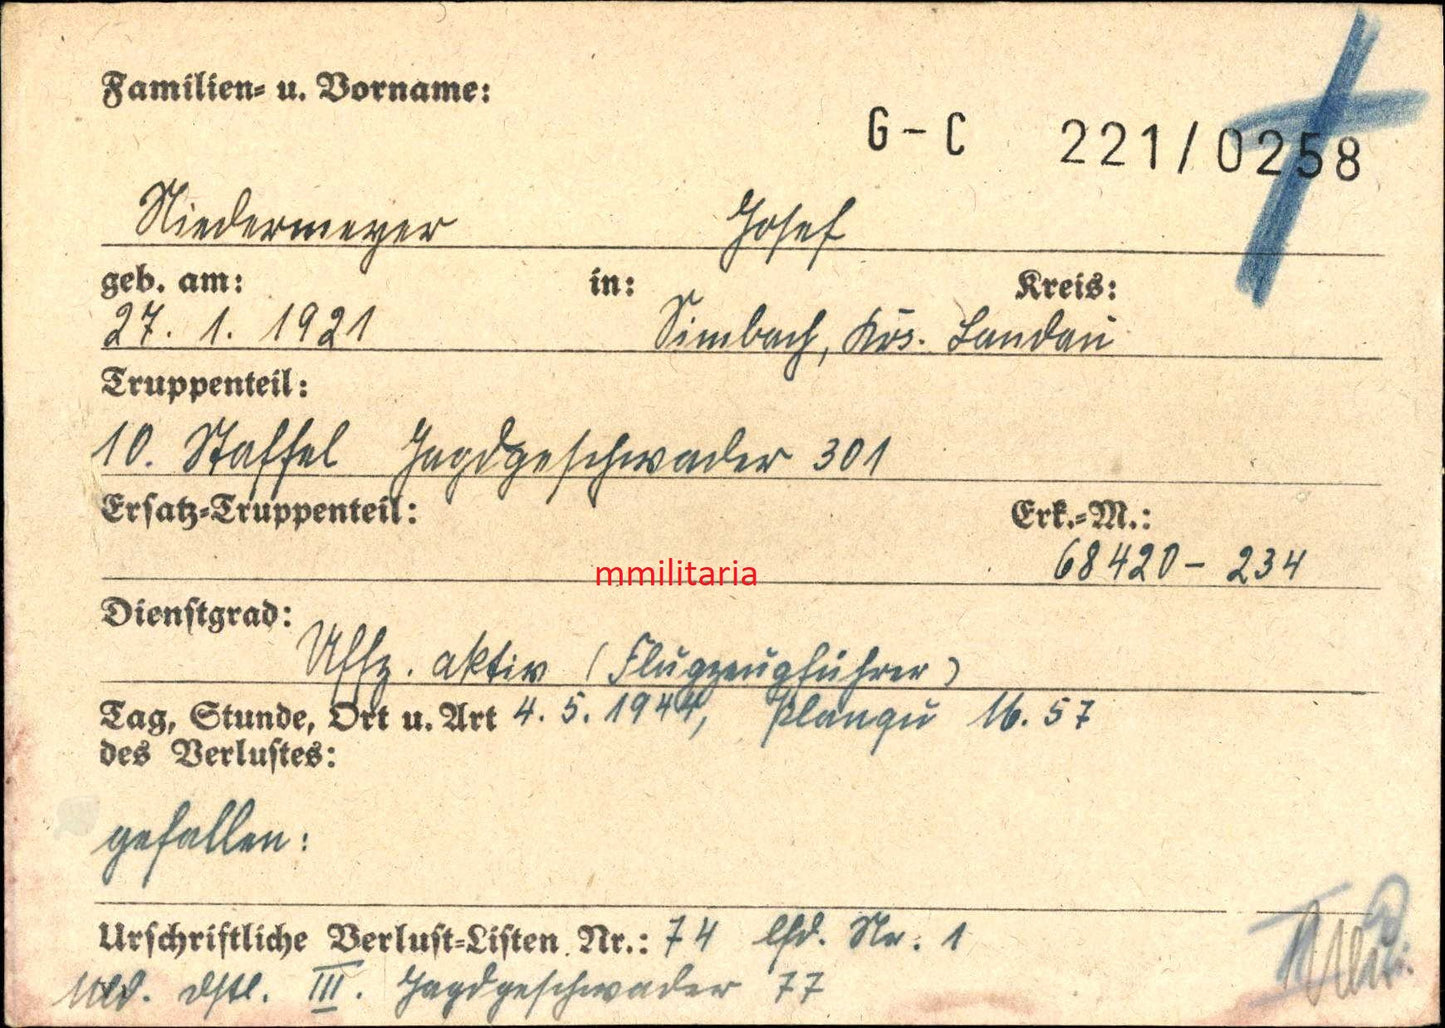 Familien- u. Vorname:
G-C 221/0258
Niedermeyer Josef
geb. am: in: Kreis:
27. 1. 1921 Simbach, Krs. Landau
Truppenteil:
10. Staffel Jagdgeschwader 301
Ersatz-Truppenteil: Erk.-M.:
68420-234
mmilitaria
Dienstgrad:
Uffz. aktiv (Flugzeugführer)
Tag, Stunde, Ort u. Art 4. 5. 1944, 16.57
des Verlustes:
gefallen:
Urschriftliche Verlust-Listen Nr.: 74 lfd. Nr. 1
III. Jagdgeschwader 77